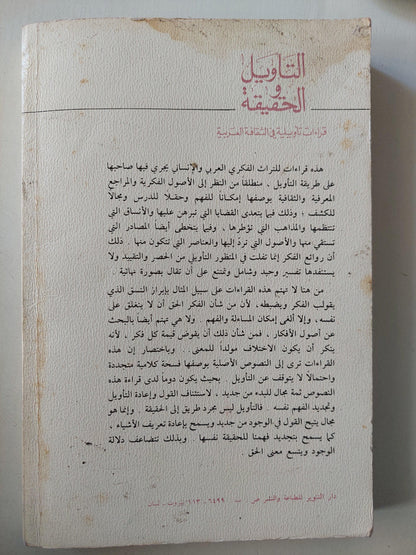 التأويل
و
الحقيقة
قراءات تأويلية في الثقافة العربية
هذه قراءات للتراث الفكري العربي والإنساني يجري فيها صاحبها
على طريقة التأويل، منطلقا من النظر إلى الأصول الفكرية والمراجع
المعرفية والثقافية بوصفها إمكاناً للفهم وحقلاً للدرس ومجالاً
للكشف؛ وذلك فيما يتعدى القضايا التي تبرهن عليها والأنساق التي
تنتظمها والمذاهب التي تؤطرها، وفيما يتخطى أيضاً المصادر التي
تستقي منها والأصول التي تردّ إليها والعناصر التي تتكون منها. ذلك
أن روائع الفكر إنما تفلت في المنظور التأويلي من الحصر والتقييد ولا
يستنفدها تفسير وحيد وشامل وتمتنع على أن تقال بصورة نهائية.
من هنا لا تهتم هذه القراءات على سبيل المثال بإبراز النسق الذي
يقولب الفكر ويضبطه، لأن من شأن الفكر الحق أن لا ينغلق على
نفسه، وإلا ألغى إمكان المساءلة والفهم.. ولا هي تهتم أيضاً بالبحث
عن أصول الأفكار، فمن شأن ذلك أن يقوض قيمة كل فكر، لأنه
ينكر أن يكون الاختلاف مولداً للمعنى.. وباختصار إن هذه
القراءات ترى إلى النصوص الأصلية بوصفها فسحة كلامية متجددة
واحتمالاً لا يتوقف عن التأويل.. بحيث يكون دوماً لدى قراءة هذه
النصوص ثمة مجال للبدء من جديد، لاستئناف القول وإعادة التأويل
وتجديد الفهم نفسه.. فالتأويل ليس مجرد طريق إلى الحقيقة.. وإنما هو
مجال يتيح القول في الوجود من جديد ويسمح بإعادة تعريف الأشياء،
كما يسمح بتجديد فهمنا للحقيقة نفسها.. وبذلك تتضاعف دلالة
الوجود ويتسع معنى الحق.
دار التنوير للطباعة والنشر ص. ب ٦٤٩٩ - ١١٣ بيروت - لبنان